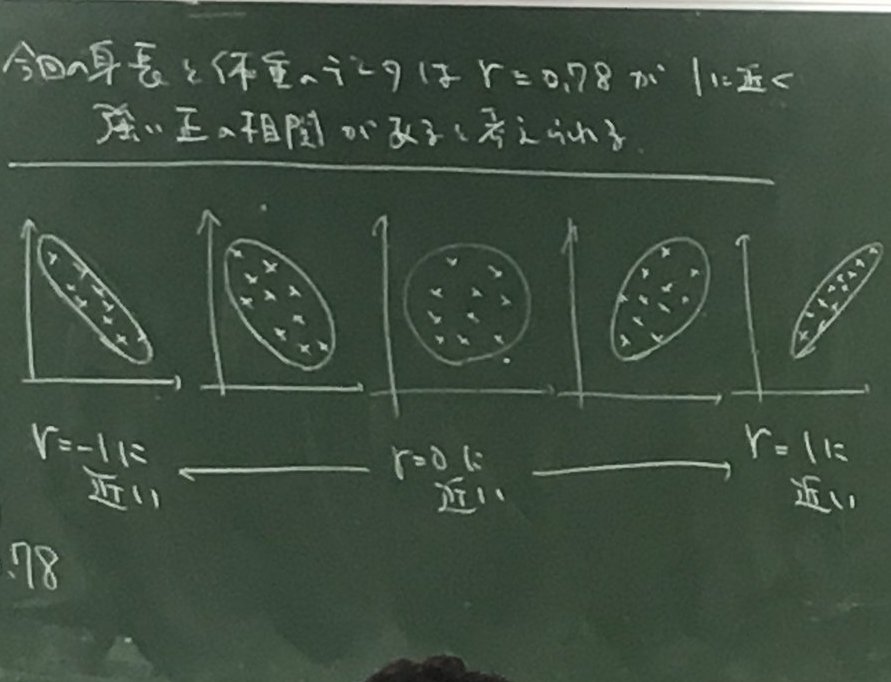 今回の身長と体重のデータは r=0.78 が 1に近く
強い正の相関があると考えられる.
r=-1に
近い
r=0に
近い
r=1に
近い
.78